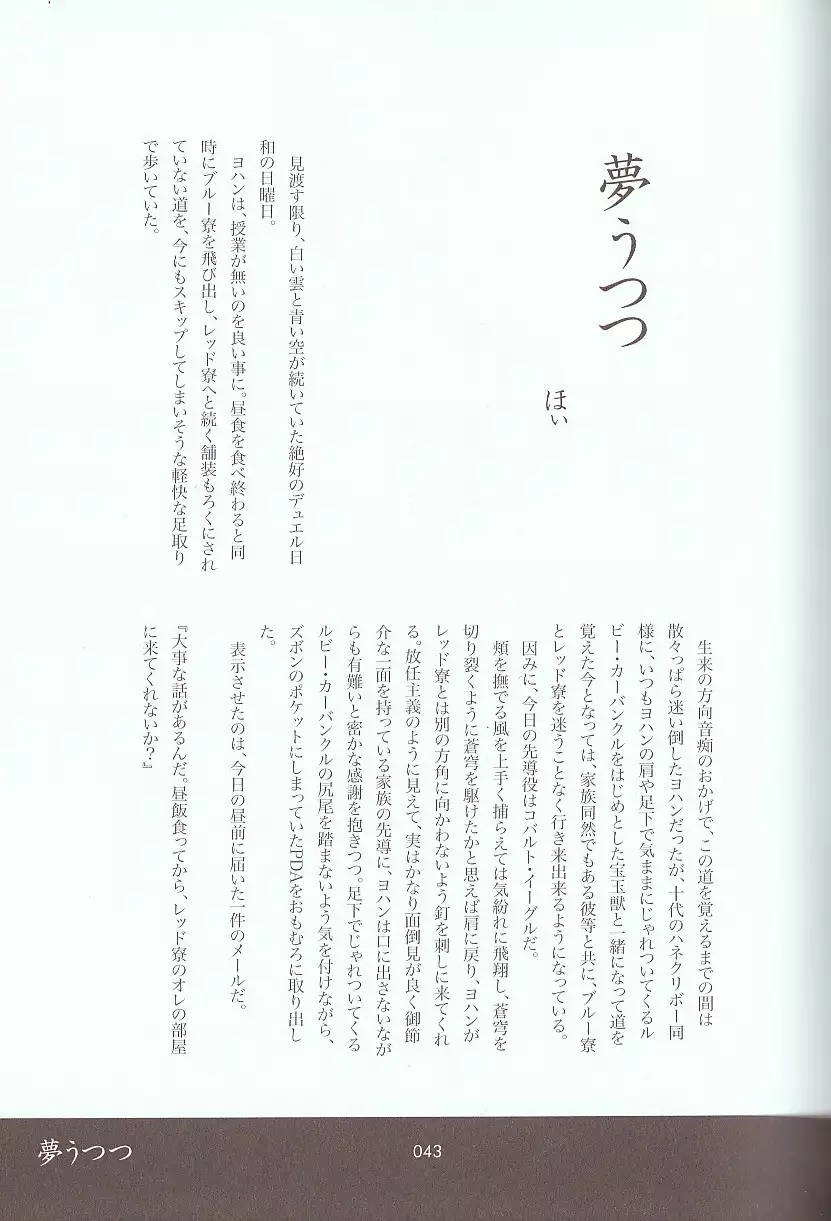 夢うつつ
ほい
見渡す限り、白い雲と青い空が続いていた絶好のデュエル日
和の日曜日。
ヨハンは、授業が無いのを良い事に。昼食を食べ終わると同
時にブルー寮を飛び出し、レッド寮へと続く舗装もろくにされ
ていない道を、今にもスキップしてしまいそうな軽快な足取り
で歩いていた。
生来の方向音痴のおかげで、この道を覚えるまでの間は
散々っぱら迷い倒したヨハンだったが、十代のハネクリボー同
様に、いつもヨハンの肩や足下で気ままにじゃれついてくるル
ビー・カーバンクルをはじめとした宝玉獣と一緒になって道を
覚えた今となっては、家族同然でもある彼等と共に、ブルー寮
とレッド寮を迷うことなく行き来出来るようになっている。
因みに、今日の先導役はコバルト・イーグルだ。
頬を撫でる風を上手く捕らえては気紛れに飛翔し、蒼穹を
切り裂くように蒼穹を駆けたかと思えば肩に戻り、ヨハンが
レッド寮とは別の方角に向かわないよう釘を刺しに来てくれ
る。放任主義のように見えて、実はかなり面倒見が良く御節
介な一面を持っている家族の先導に、ヨハンは口に出さないなが
らも有難いと密かな感謝を抱きつつ。足下でじゃれついてくる
ルビー・カーバンクルの尻尾を踏まないよう気を付けながら、
ズボンのポケットにしまっていたPDAをおもむろに取り出し
た。
表示させたのは、今日の昼前に届いた一件のメールだ。
『大事な話があるんだ。昼飯食ってから、レッド寮のオレの部屋
に来てくれないか？』
夢うつつ
043